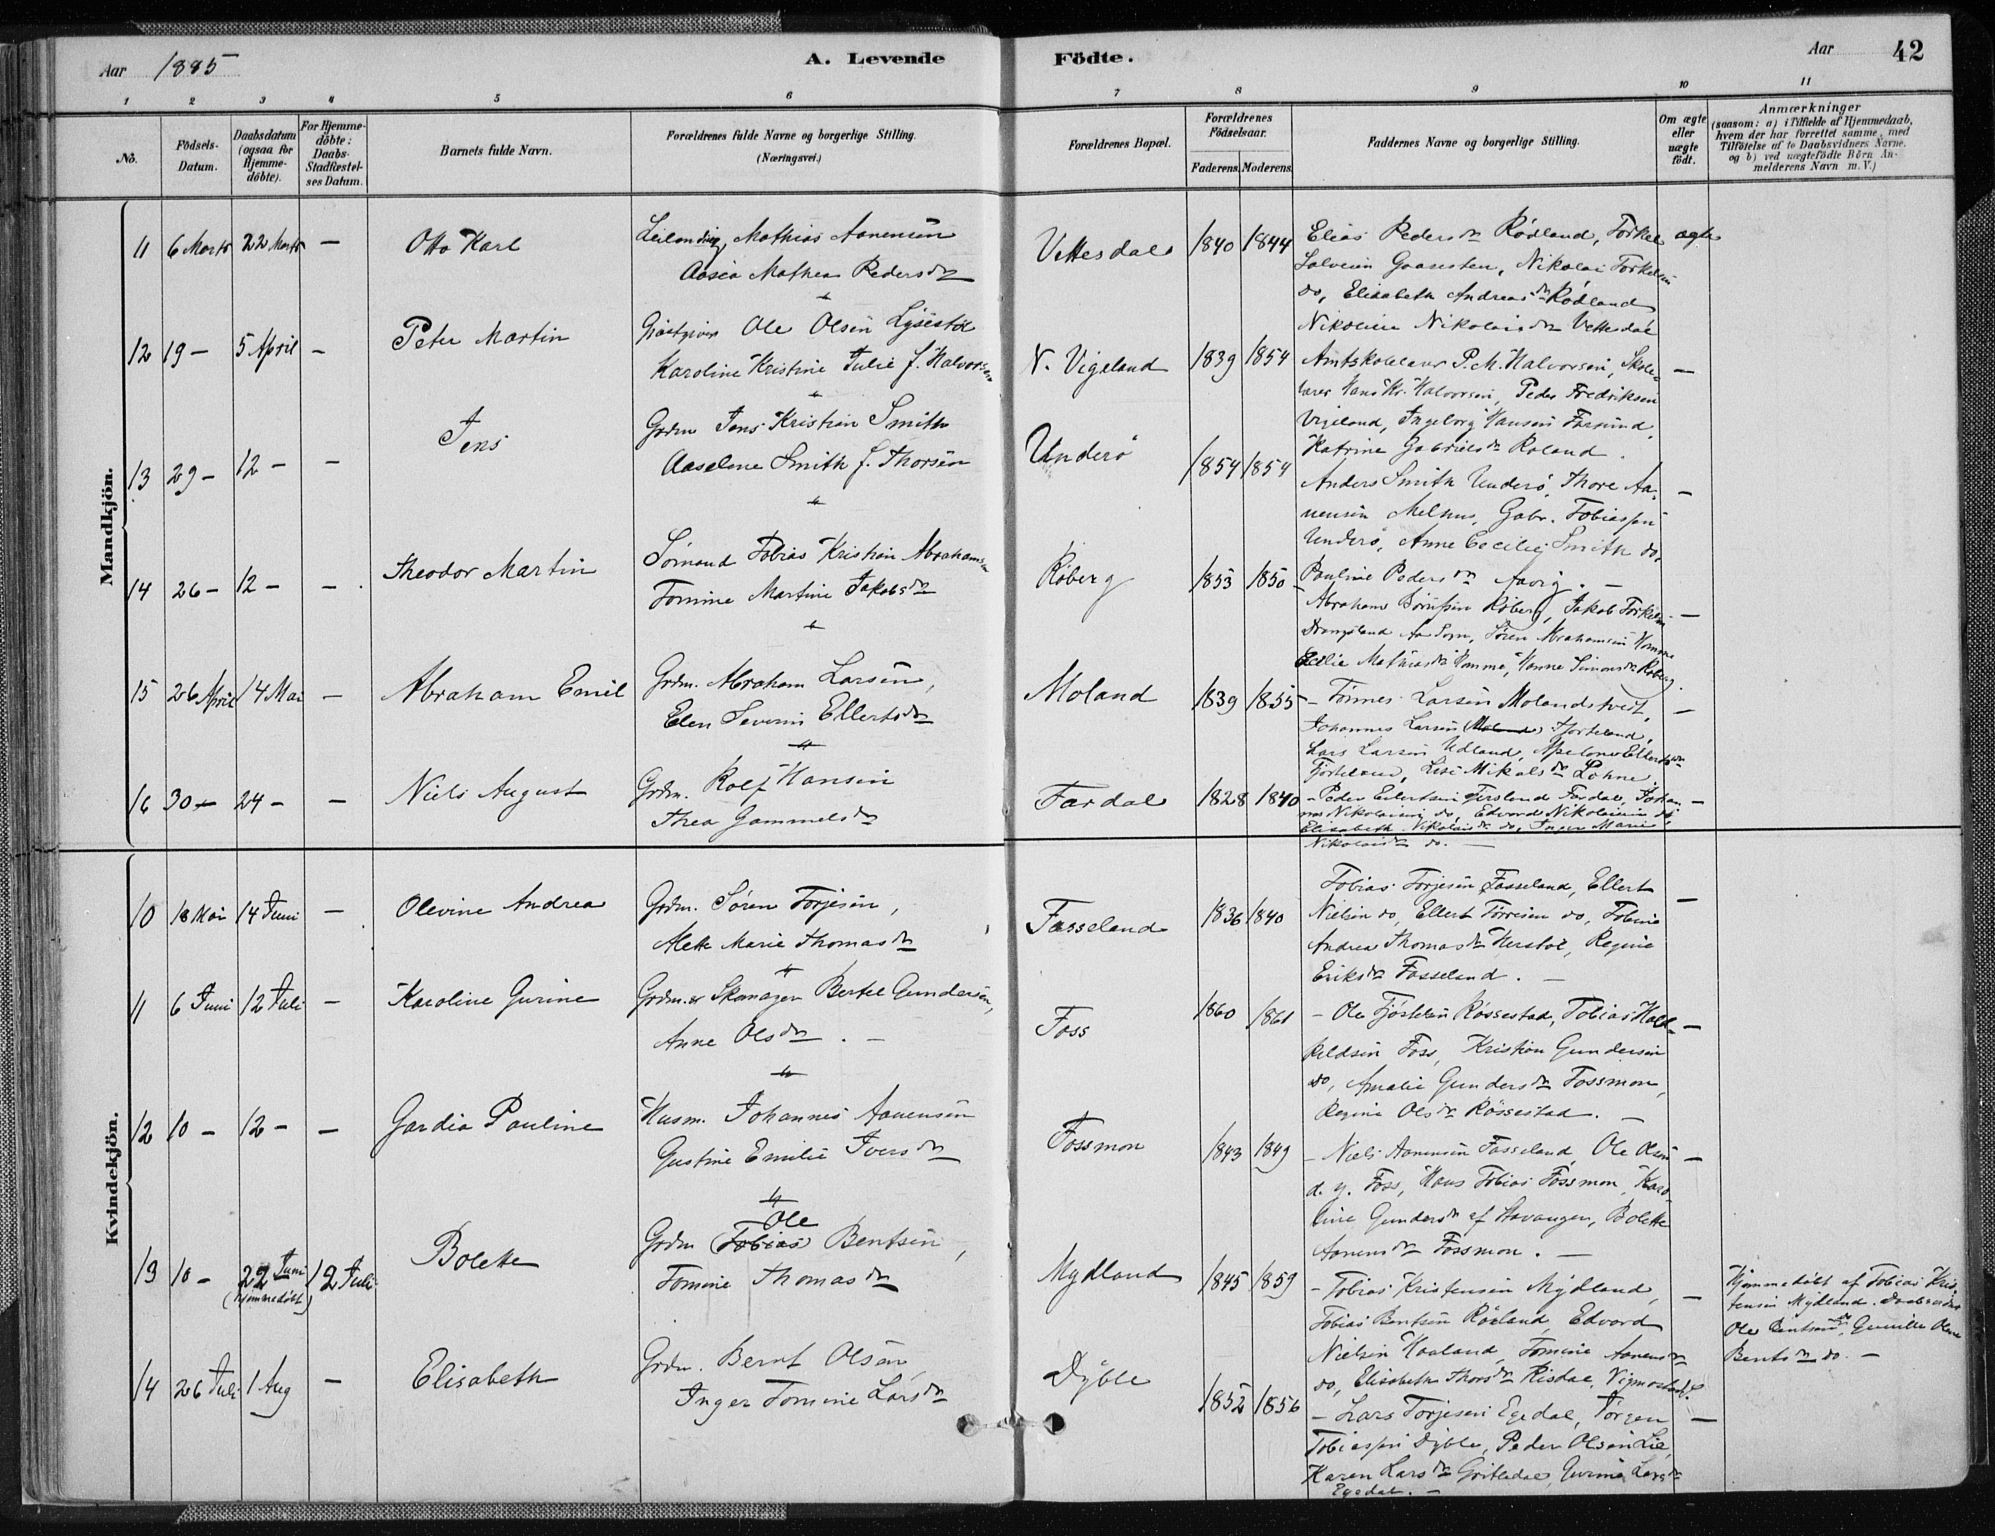 Aar 1885
A. Levende
Födte.
Aar
42
1 2 3 4 5 6 7 8 9 10 11
No.
Födsels-
Datum.
Daabsdatum
(ogsaa for
Hjemme-
döbte).
For Hjemme-
döbte:
Daabs-
Stadfæstel-
ses Datum.
Barnets fulde Navn.
Forældrenes fulde Navne og borgerlige Stilling.
(Næringsvei.)
Forældrenes Bopæl.
Forældrenes
Födselsaar.
Faderens. Moderens.
Faddernes Navne og borgerlige Stilling.
Om ægte
eller
uægte
födt.
Anmærkninger
(saasom: a) i Tilfælde af Hjemmedaab,
hvem der har forrettet samme, med
Tilföielse af to Daabsvidners Navne.
og b) ved uægtefödte Börn An-
melderens Navn m. V.)
Mandkjön.
11 6 Marts 22 Marts — Otto Karl
Mathias Aanensen
Aasea Mathea Pedersdr
Vettesdal 1840 1844
Elias Pedersen Rødland, Torkel
Nikolai Torkelsen
do, Elisabeth Andreasdr Rødland
Nikoline Nikolaisdr Vettedal
ægte
12 19 — 5 April — Peter Martin
Ole Olsen Lysestøl
Karoline Kristine Julie f. Halvorsen
N. Vigeland 1839 1854
P. M. Halvorsen, Skole-
lærer Hans Kr. Halvorsen, Peder Fredriksen
Vigeland, Ingeborg Hansen Farsund,
Katrine Gabrielsdr Roland.
—
13 29 — 12 — — Jens
Grdm Jens Kristian Smith
Aaselene Smith f. Thorsen
Underö 1854 1854
Anders Smith Underö, Thore Aa-
nensen Melhus, Gabr. Tobiassen
Underö, Anne Cecilie Smith do,
Pauline Pedersdr Aavig. —
—
14 26 — 12 — — Theodor Martin
Sømand Tobias Kristian Abrahamsen
Tomine Martine Jakobsdr
Røberg 1853 1850
Abraham Røberg, Jakob Torkelsen
Drangsland Aa Sogn, Søren Abrahamsen Homme
Mathiasdr Homme, Hanne Simonsdr Røberg.
—
15 26 April 14 Mai — Abraham Emil
Grdm. Abraham Larsen,
Elen Severine Ellertsdr
Moland 1839 1855
— Tönnes Larsen Molandstvedt,
Johannes Larsen Fjorteland,
Lars Larsen Udland, Ellertsdr
Fjorteland, Lise Mikalsdr Lohne
—
16 30 — 24 — — Niels August
Grdm. Rolf Hansen
Thea Gammelsdr
Fardal 1828 1840
— Peder Eilertsen Fardal, Johan-
nes Nikolaisen do, Edvard Nikolaisen do,
Elisabeth Nikolaisdr do, Inger Marie
Nikolaisdr do. —
—
Kvindekjön.
10 18 Mai 14 Juni — Olevine Andrea
Grdm. Søren Torjesen,
Alette Marie Thomasdr
Fasseland 1836 1840
Tobias Torjesen Fasseland, Ellert
Nielsen do, Ellert Tørresen do, Tobine
Andrea Thomasdr Herstøl, Regine
Eriksdr Fasseland. —
—
11 6 Juni 12 Juli — Karoline Gurine
Grdm. & Skomager Bertel Gundersen,
Anne Olsdr. —
Foss 1860 1861
— Ole Røssestad, Tobias
Foss, Kristian Gundersen
do, Amalie Gundersdr Fossmon,
Regine Olsdr Røssestad. —
—
12 10 — 12 — — Gardia Pauline
Husm. Johannes Aanensen
Gustine Emilie Iversdr
Fossmon 1843 1849
— Niels Aanensen Fasseland, Ole Olsen
d. y. Foss, Hans Tobias Fossmon, Karo-
line Gundersdr af Stavanger, Bolette
Aanensdr Fossmon. —
—
13 10 — 22 Juni 12 Juli Bolette
(hjemmedöbt)
Ole
Grdm Tobias Bentsen,
Tomine Thomasdr
Mydland 1845 1859
— Tobias Kristensen Mydland,
Tobias Bentsen Røiland, Edvard
Nielsen Haaland, Tomine Aanensdr
do, Elisabeth Thorsdr Risdal,
—
Hjemmedöbt af Tobias Kris-
tensen Mydland. Daabsvidner
Ole Bentsen do, Gunille Olene
Bentsdr do. —
14 26 Juli 1 Aug — Elisabeth
Grdm. Bernt Olsen,
Inger Tomine Larsdr
Dyble 1852 1856
— Lars Torjesen Egedal, Tørgen
Tobiassen Dyble, Peder Olsen Lie,
Karen Larsdr Gurine Larsdr
Egedal. —
—